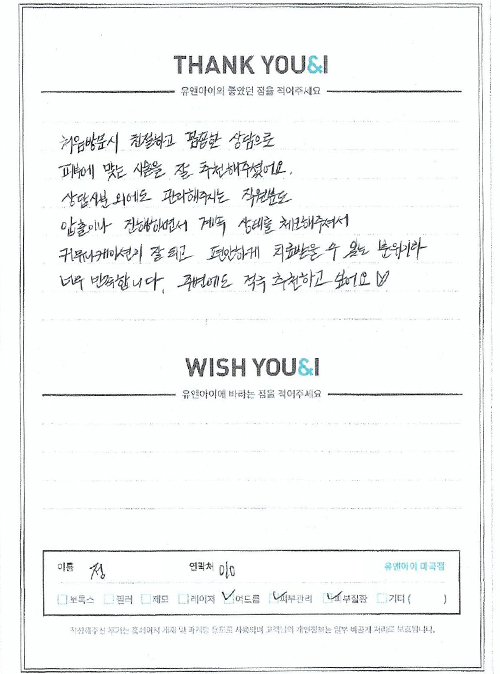 THANK YOU&I
유앤아이의 좋았던 점을 적어주세요
처음방문시 친절하고 꼼꼼한 상담으로
피부에 맞는 시술을 잘 추천해주셨어요.
상담사분 외에도 관리해주시는 직원분도
압출이나 진행하면서 계속 상태를 체크해주셔서
커뮤니케이션이 잘 되고 편안하게 치료받을 수 있는 분위기라
너무 만족합니다. 주변에도 적극 추천하고 싶어요 ♡
WISH YOU&I
유앤아이에 바라는 점을 적어주세요
이름 정 연락처 010 유앤아이 미금점
보톡스 필러 제모 레이저 여드름 피부관리 피부질환 기타 ( )
작성해주신 후기는 홈페이지 게재 및 마케팅 용도로 사용되며 고객님의 개인정보는 일부 비공개 처리로 보호됩니다.